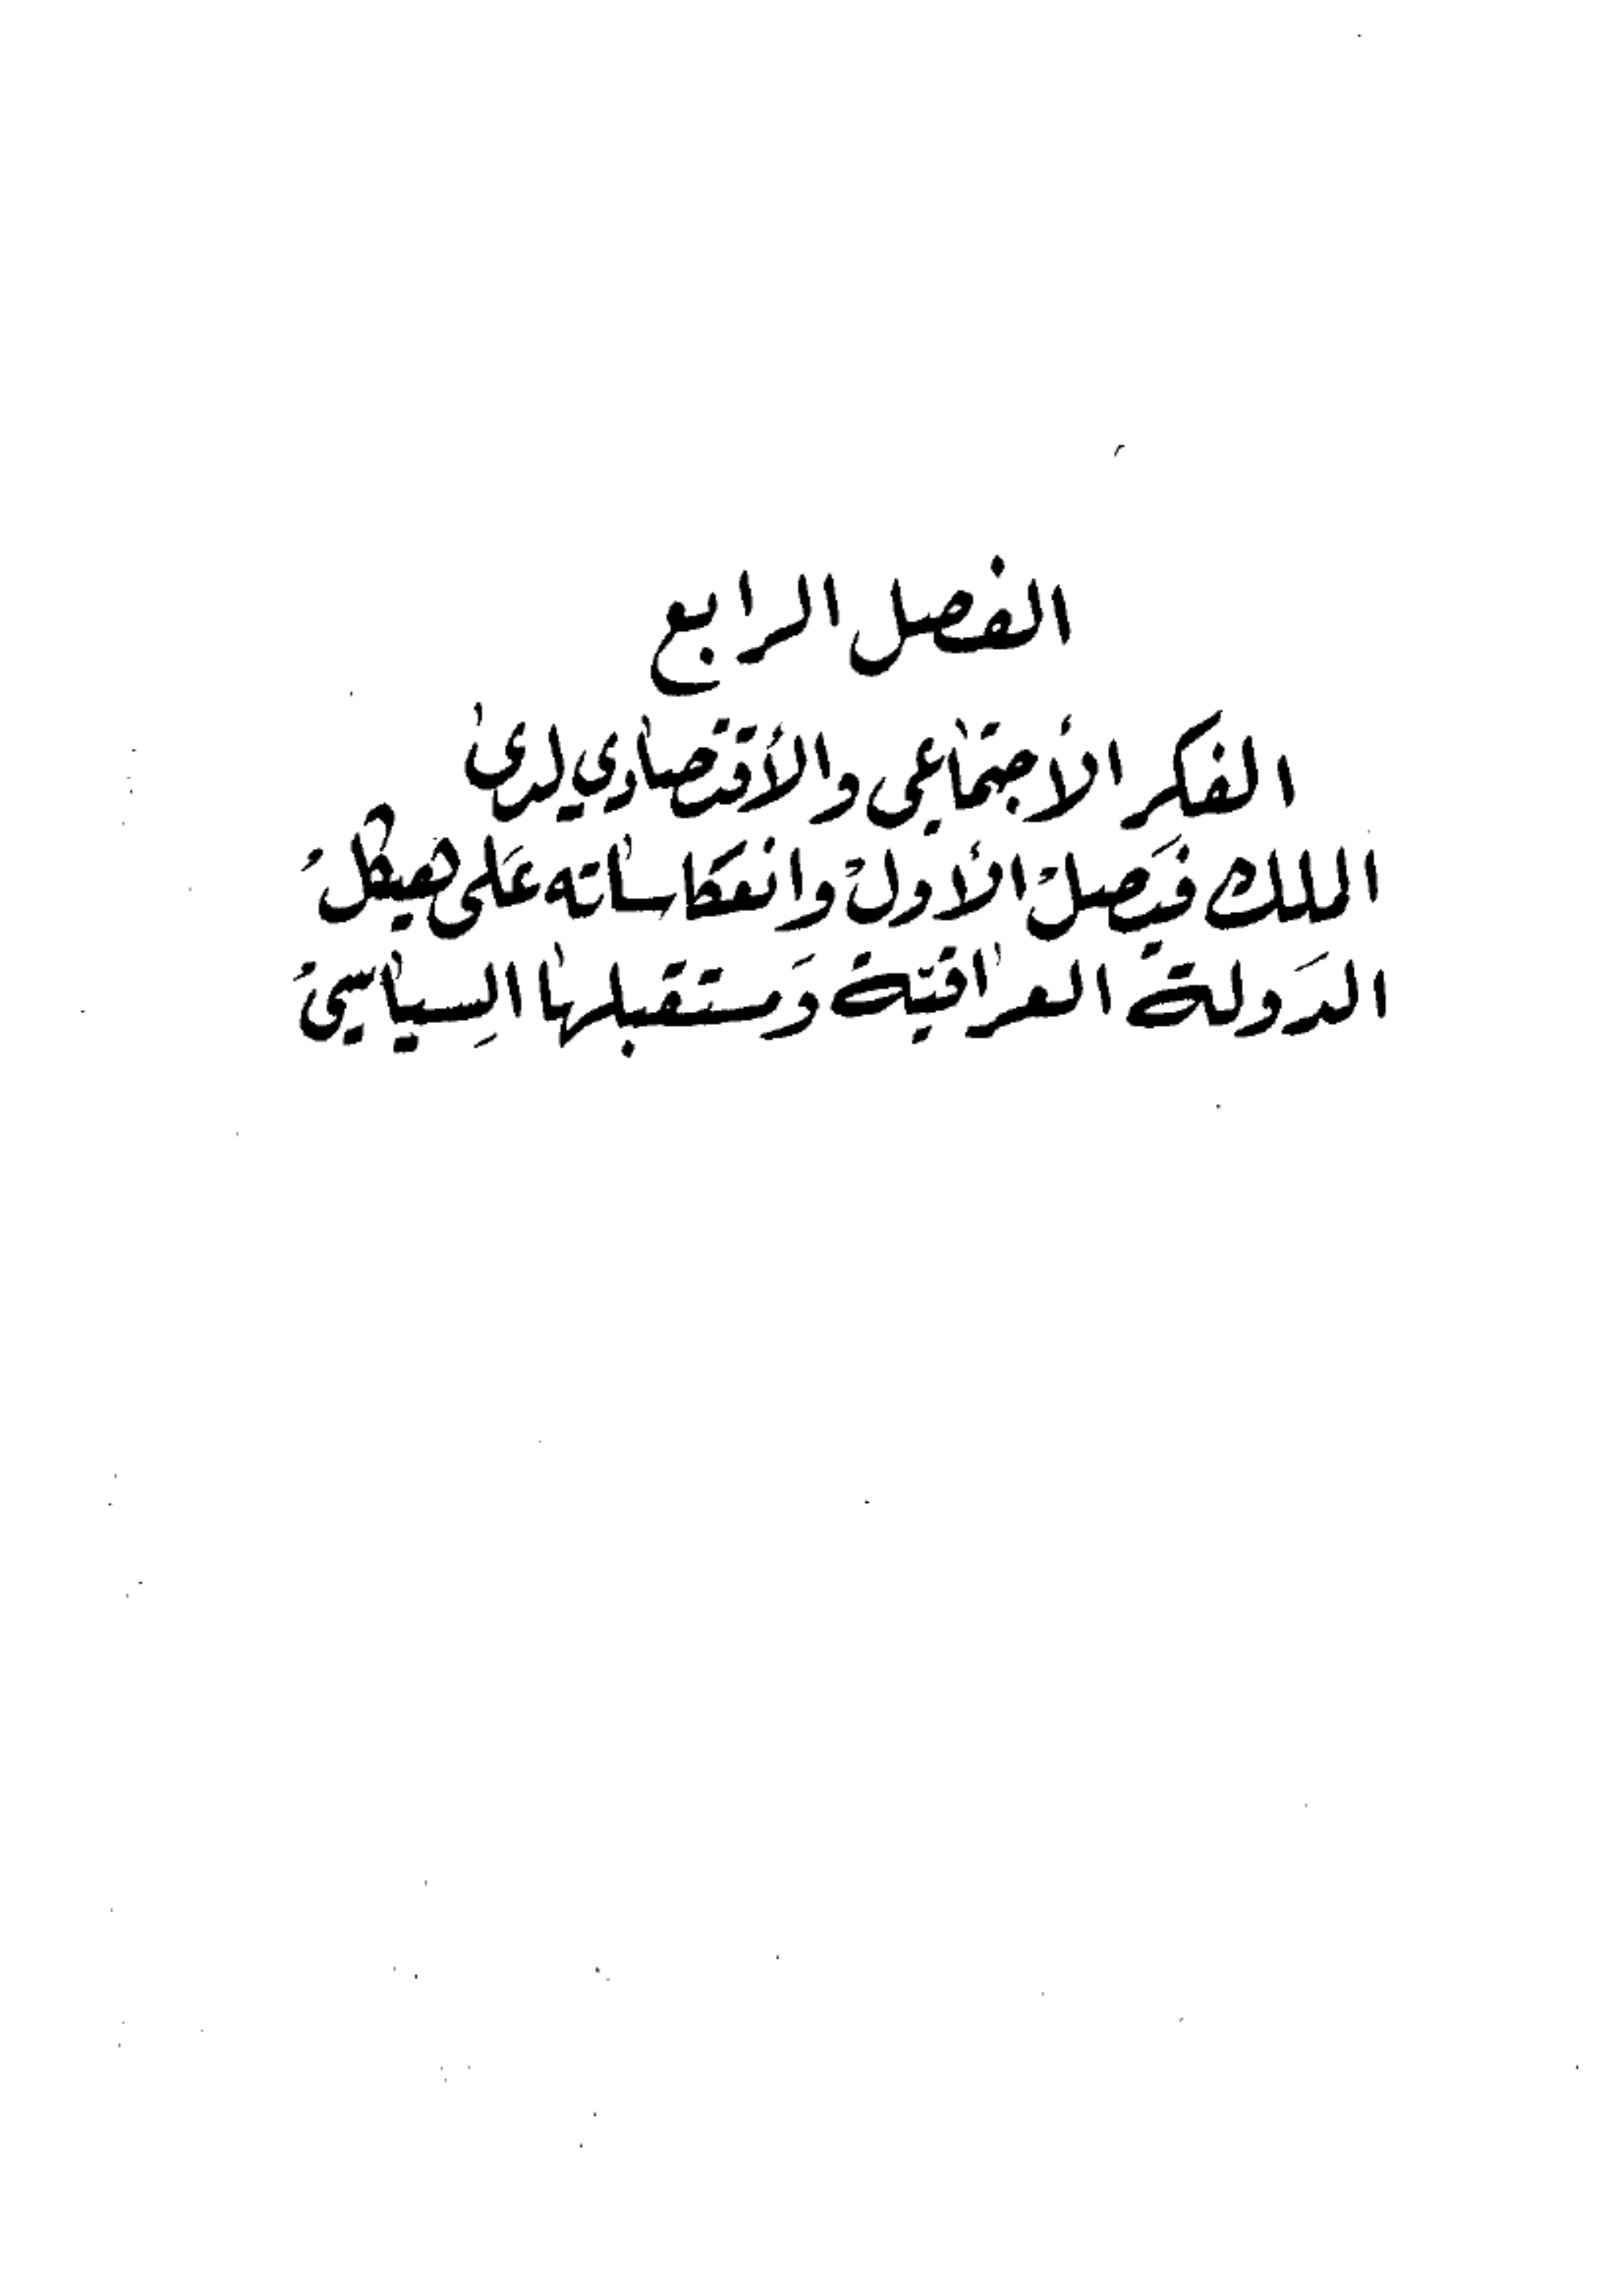 الفصل الرابع
الفكر الأجتماعي والأقتصادي لدى
الملك فيصل الأول وانعكاساته على هيكل
الدولة العراقية ومستقبلها السياسي